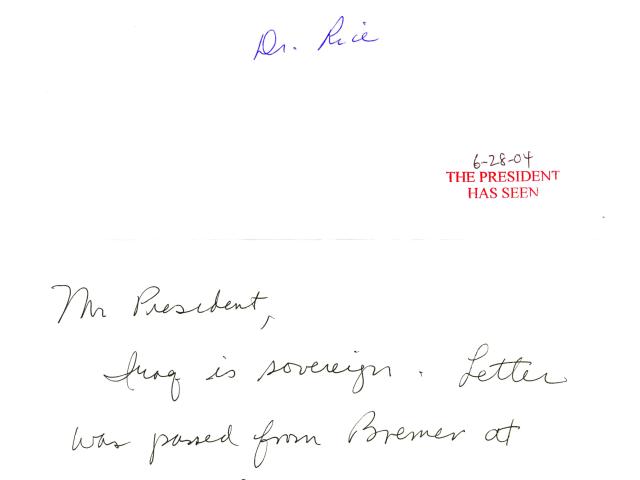 Dr. Rice
6-28-04
THE PRESIDENT
HAS SEEN
Mr President,
Iraq is sovereign. Letter
was passed from Bremer at